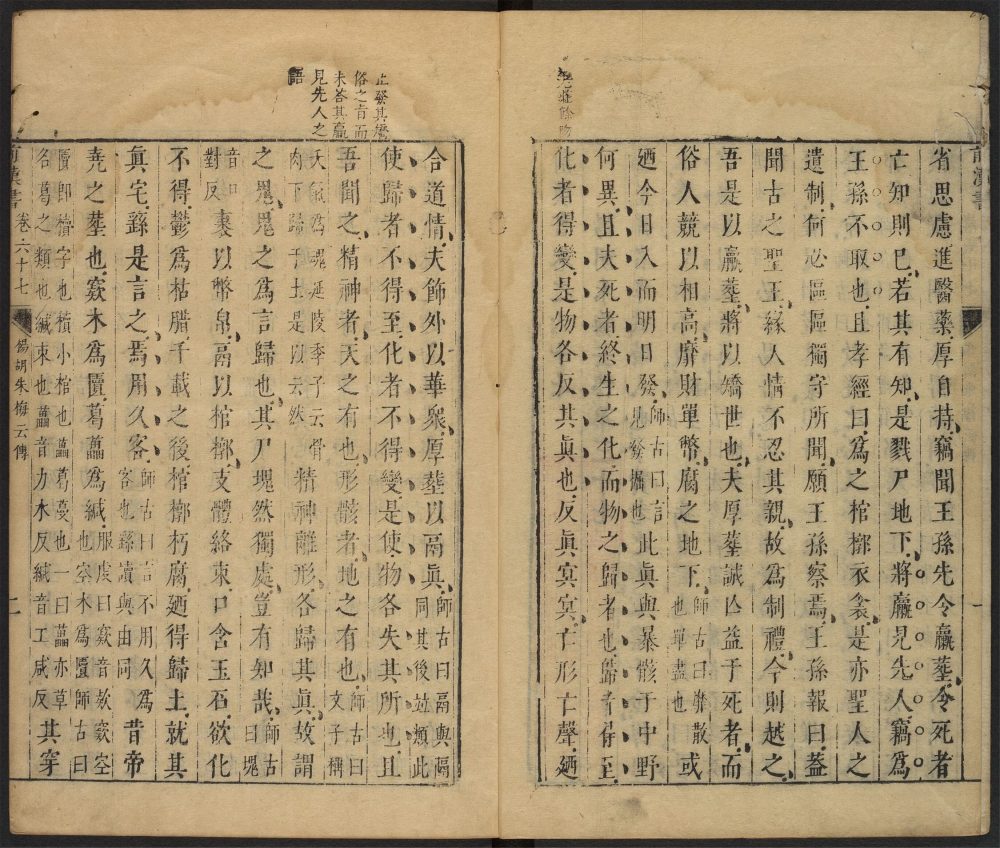 省思慮進醫藥厚自持竊聞王孫先令臝葬令死者
亡知則已若其有知是戮尸地下將臝見先人竊爲
王孫不取也且孝經曰爲之棺槨衣衾是亦聖人之
遺制何必區區獨守所聞願王孫察焉王孫報曰蓋
聞古之聖王緣人情不忍其親故爲制禮今則越之
吾是以臝葬將以矯世也夫厚葬誠亡益于死者而
俗人競以相高靡財單幣腐之地下師古曰靡散也單盡也或
廼今日入而明日發師古曰言見發掘也此眞與暴骸于中野
何異且夫死者終生之化而物之歸者也歸者得至
化者得變是物各反其眞也反眞冥冥亡形亡聲廼
合道情夫飾外以華衆厚葬以鬲眞師古曰鬲與隔同其後竝類此
使歸者不得至化者不得變是使物各失其所也且
吾聞之精神者天之有也形骸者地之有也師古曰文子稱
天氣爲魂延陵季子云骨肉下歸于土是以云然精神離形各歸其眞故謂
之鬼鬼之爲言歸也其尸塊然獨處豈有知哉師古曰塊
音口對反裹以幣帛鬲以棺槨支體絡束口含玉石欲化
不得鬱爲枯腊千載之後棺槨朽腐廼得歸土就其
眞宅繇是言之焉用久客師古曰言不用久爲客也繇讀與由同昔帝
堯之葬也窾木爲匵葛藟爲緘服虔曰窾音款窾空也空木爲匵師古曰
匵即櫝字也櫝小棺也藟葛蔓也一曰藟亦草名葛之類也緘束也藟音力水反緘音工咸反其穿
前漢書 卷六十七 楊胡朱梅云傳 二
止發其矯
俗之旨而
未答其臝
見先人之
語